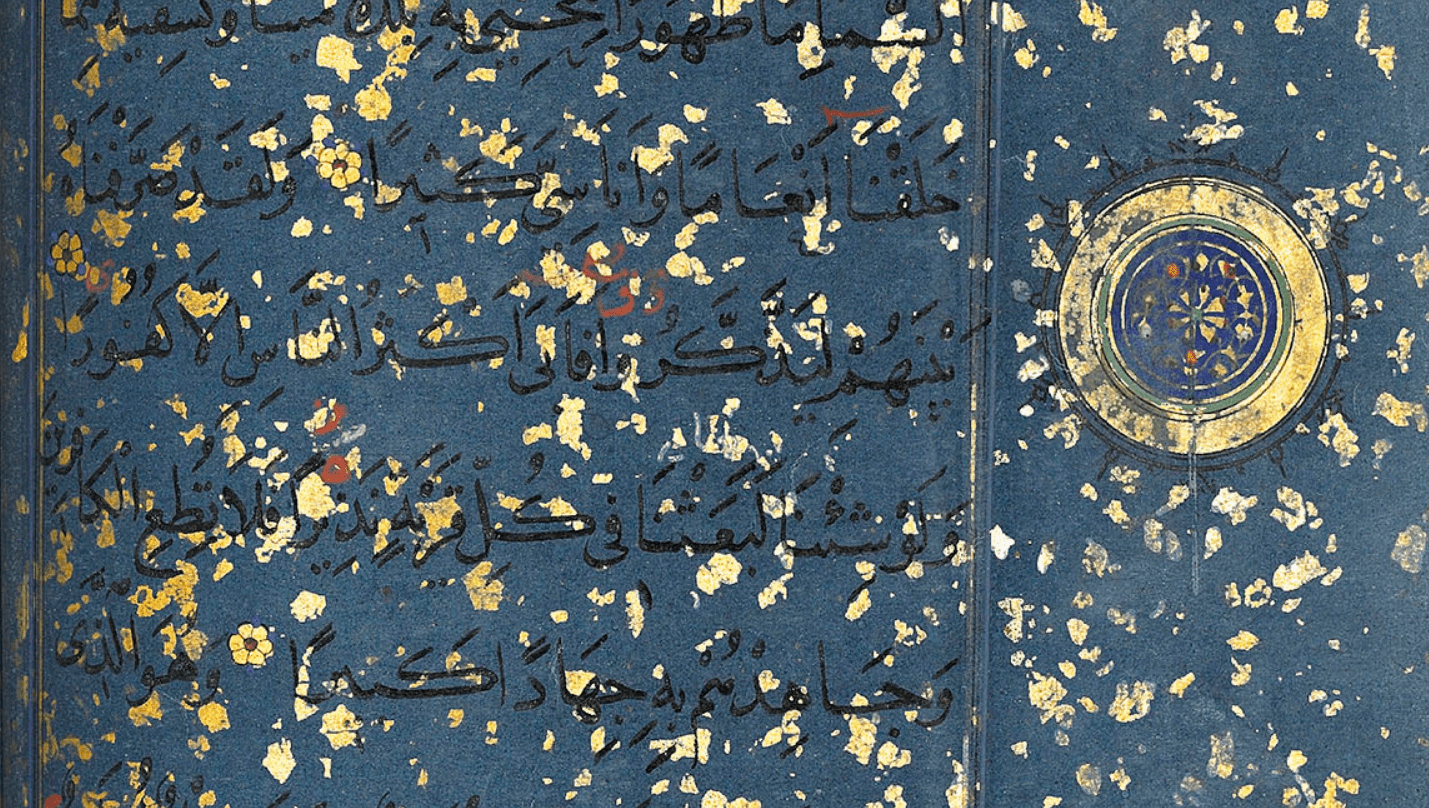 السَّمَاءِ مَاءً طَهُورًا لِنُحْيِيَ بِهِ بَلْدَةً مَيْتًا وَنُسْقِيَهُ مِمَّا
خَلَقْنَا أَنْعَامًا وَأَنَاسِيَّ كَثِيرًا وَلَقَدْ صَرَّفْنَاهُ
بَيْنَهُمْ لِيَذَّكَّرُوا فَأَبَى أَكْثَرُ النَّاسِ إِلَّا كُفُورًا
وَلَوْ شِئْنَا لَبَعَثْنَا فِي كُلِّ قَرْيَةٍ نَذِيرًا فَلَا تُطِعِ الْكَافِرِينَ
وَجَاهِدْهُمْ بِهِ جِهَادًا كَبِيرًا وَهُوَ الَّذِي